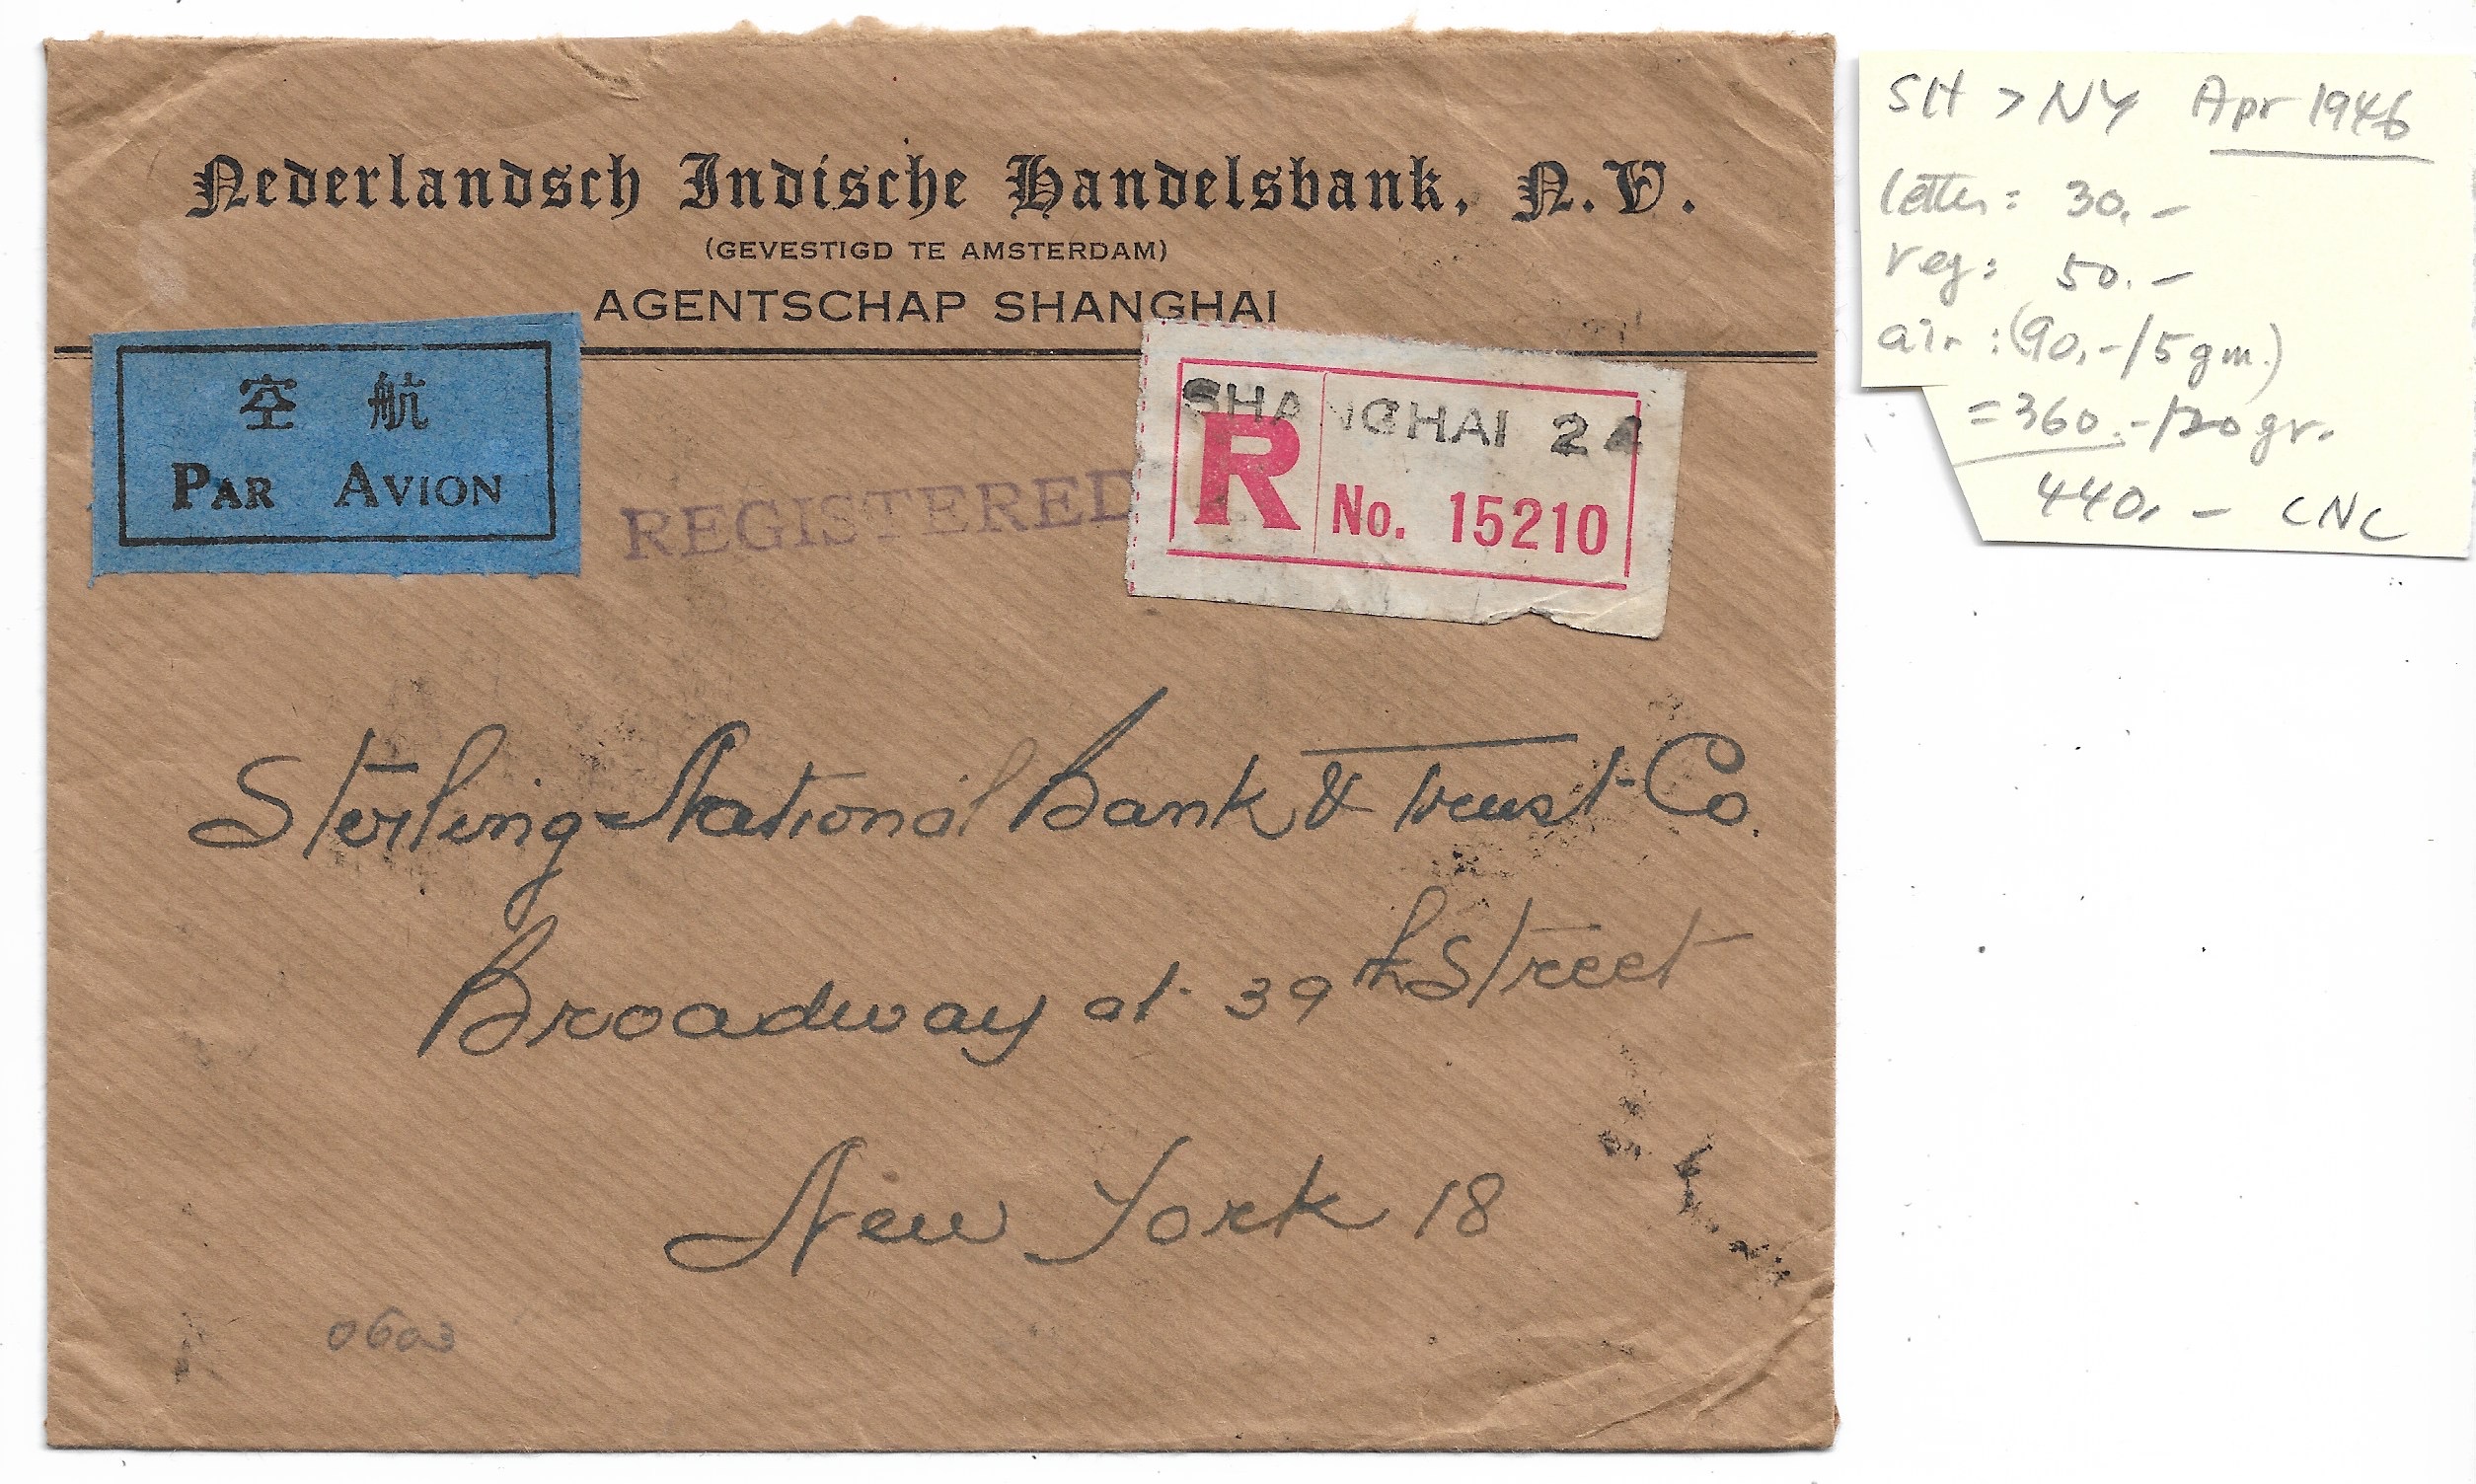 Nederlandsch Indische Handelsbank, N.V.
(GEVESTIGD TE AMSTERDAM)
AGENTSCHAP SHANGHAI
空 航
PAR AVION
REGISTERED
SHANGHAI 24
R No. 15210
Sterling National Bank & Trust Co.
Broadway at 39th Street
New York 18
0603
SH > NY Apr 1946
letter: 30.-
reg: 50.-
air: (90.-/5gm.)
= 360.-/20gr.
440.- CNC